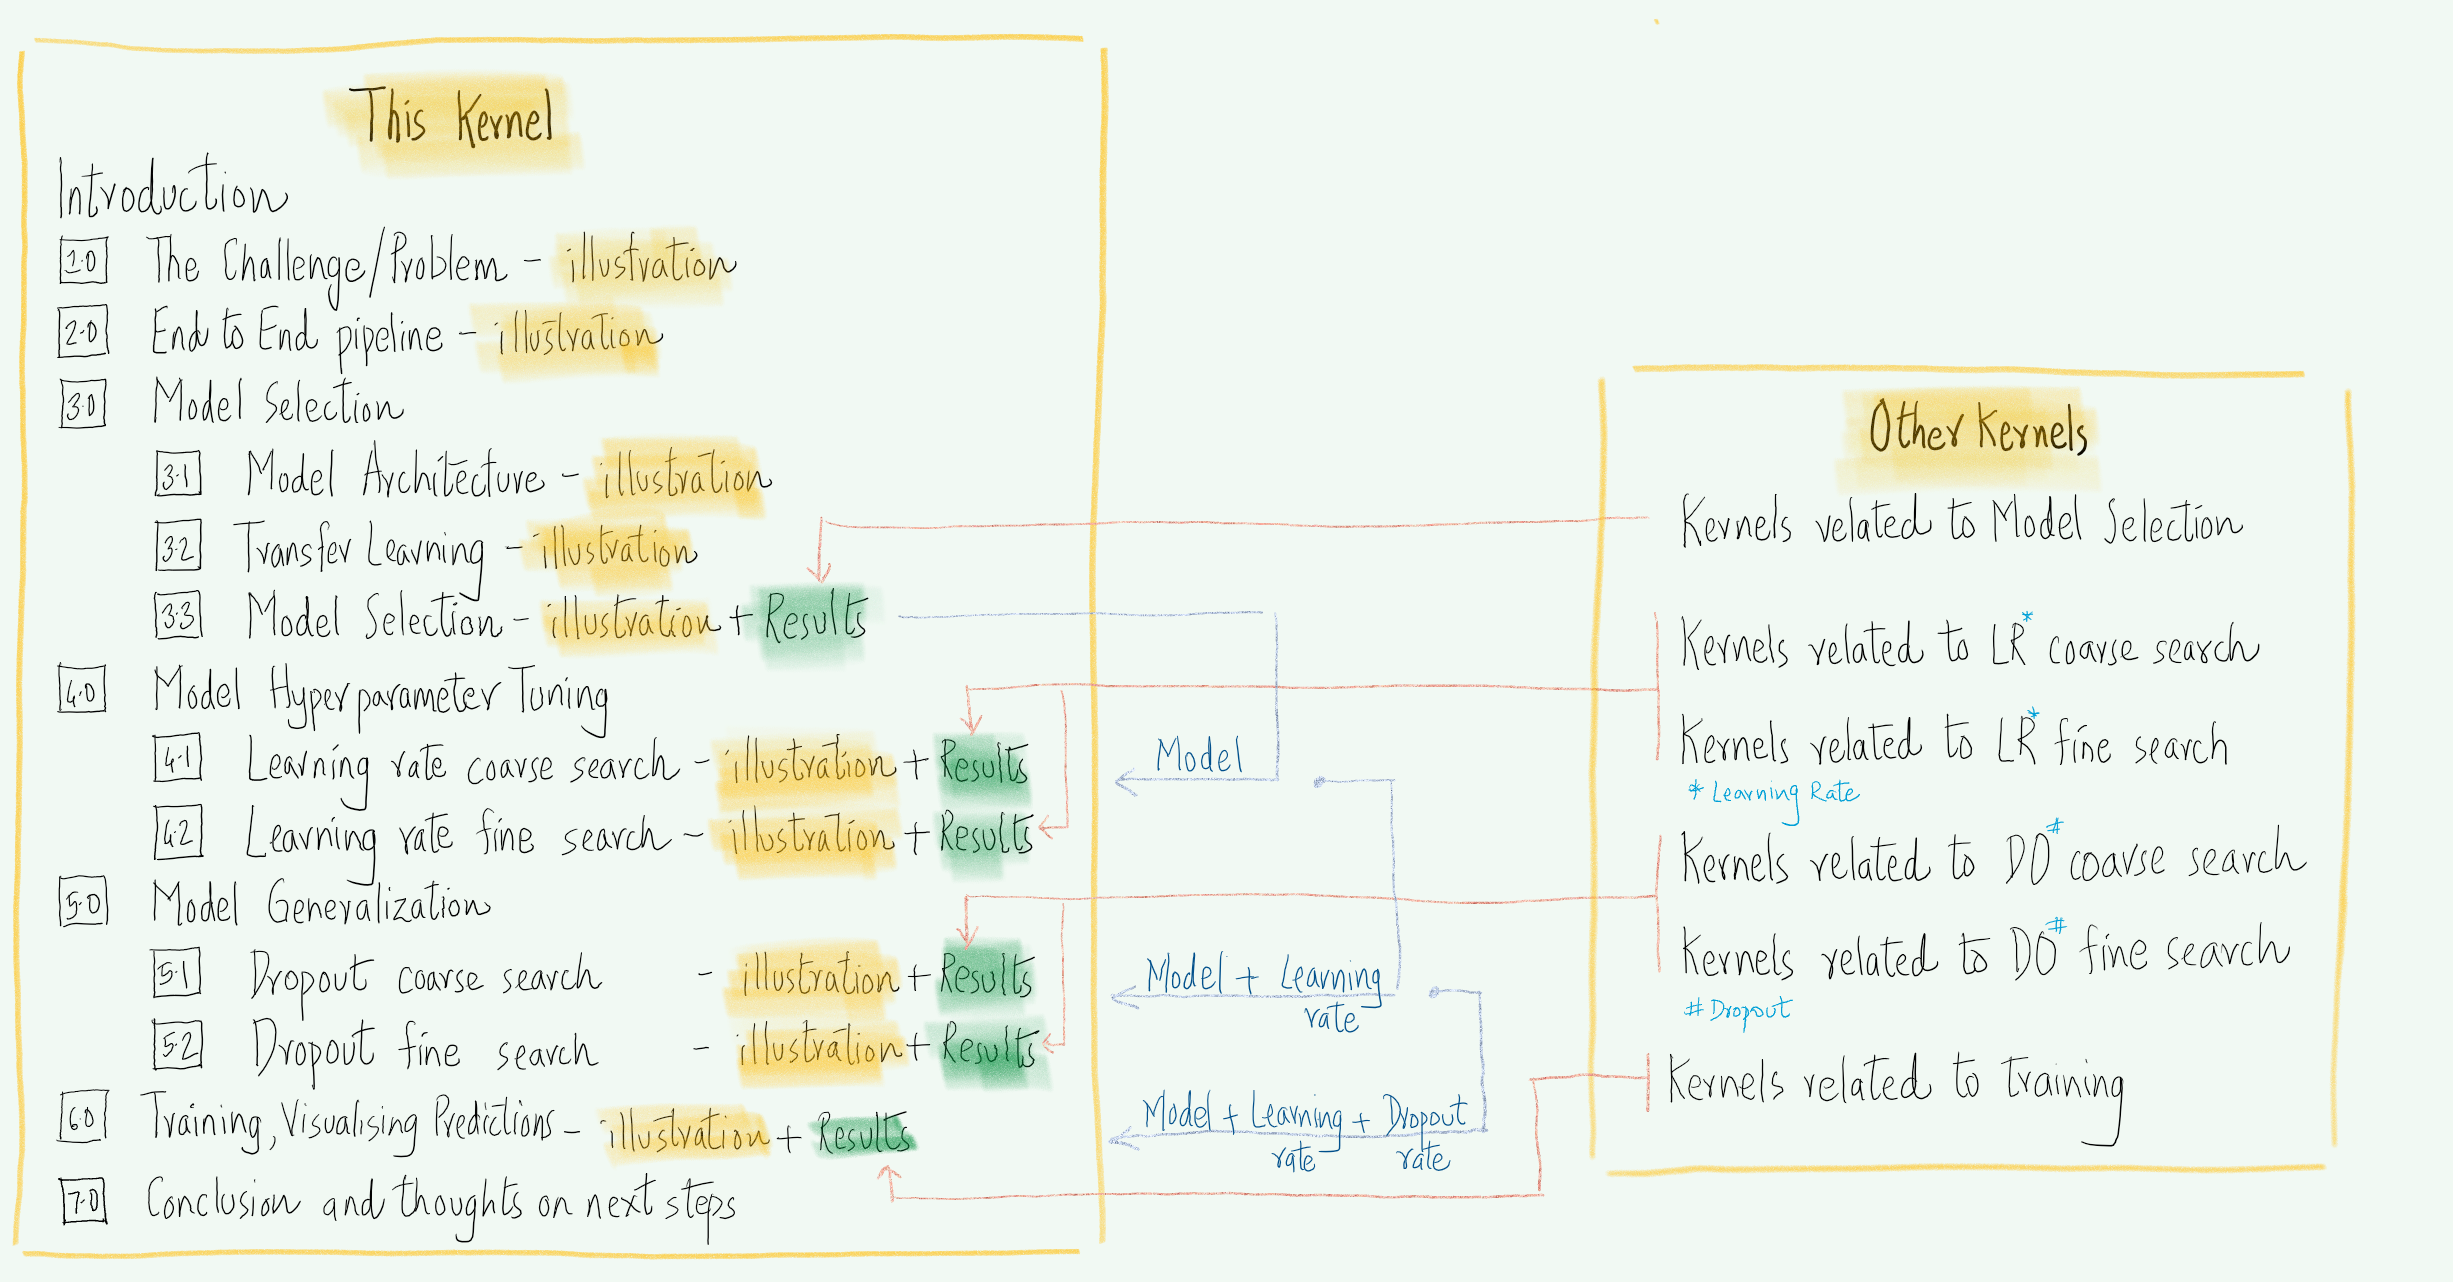 This Kernel
Introduction
1.0 The Challenge/Problem - illustration
2.0 End to End pipeline - illustration
3.0 Model Selection
3.1 Model Architecture - illustration
3.2 Transfer Learning - illustration
3.3 Model Selection - illustration + Results
4.0 Model Hyperparameter Tuning
4.1 Learning rate coarse search - illustration + Results
4.2 Learning rate fine search - illustration + Results
5.0 Model Generalization
5.1 Dropout coarse search - illustration + Results
5.2 Dropout fine search - illustration + Results
6.0 Training, Visualising Predictions - illustration + Results
7.0 Conclusion and thoughts on next steps
Model
Model + Learning
rate
Model + Learning + Dropout
rate rate
Other Kernels
Kernels related to Model Selection
Kernels related to LR* coarse search
Kernels related to LR* fine search
* Learning Rate
Kernels related to DO# coarse search
Kernels related to DO# fine search
# Dropout
Kernels related to training